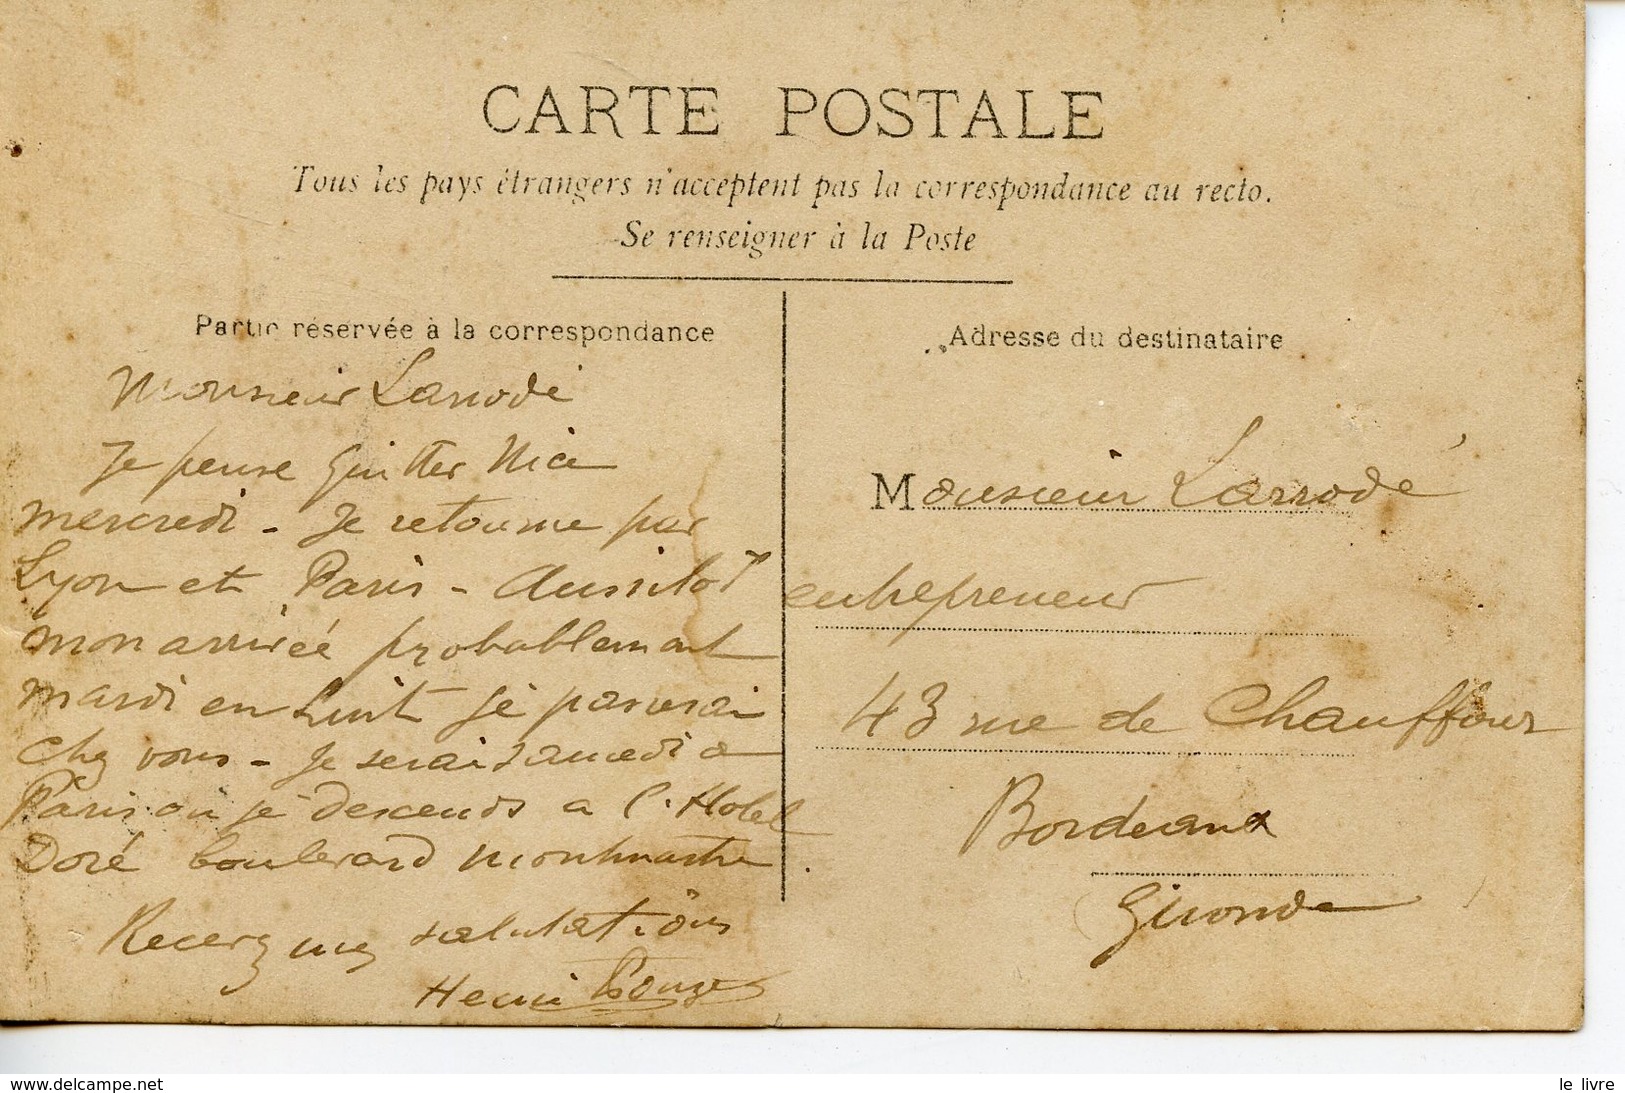 CARTE POSTALE
Tous les pays étrangers n'acceptent pas la correspondance au recto.
Se renseigner à la Poste
Partie réservée à la correspondance
Monsieur Larrodé
Je pense quitter Nice
mercredi - Je retourne par
Lyon et Paris - Aussitôt
mon arrivée probablement
mardi en huit je passerai
chez vous - Je serai samedi a
Paris où je descends a l'Hotel
Doré boulevard Montmartre.
Recevez mes salutations
Henri
Adresse du destinataire
Monsieur Larrodé
entrepreneur
43 rue de Chauffour
Bordeaux
Gironde
www.delcampe.net
le livre